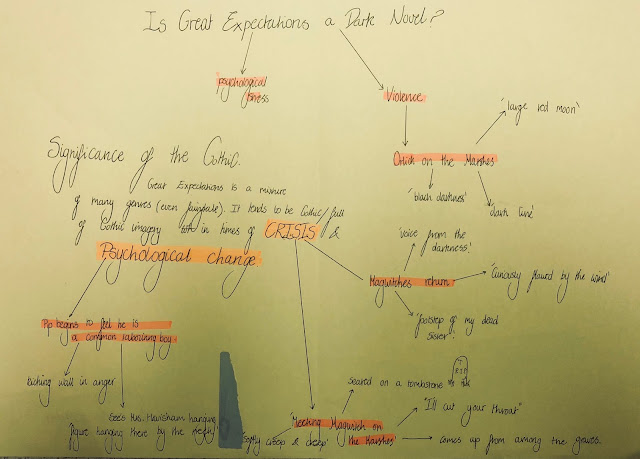 Is Great Expectations a Dark Novel?
psychological
illness
Violence
'large red moon'
Orlick on the Marshes
'black darkness'
'dark line'
Significance of the Gothic.
Great Expectations is a mixture
of many genres (even fairytale). It tends to be Gothic/full
of Gothic imagery in times of CRISIS &
Psychological change
'voice from the
darkness'
Magwitches return
'curiously flawed by the wind'
'footstep of my dead
sister'
Pip begins to feel he is
a common labouring boy.
kicking wall in anger
Sees Mrs. Havisham hanging
'figure hanging there by the neck'
Meeting Magwitch on
the Marshes
seared on a tombstone
RIP
"I'll cut your throat"
comes up from among the graves.
'softly creep & creep'